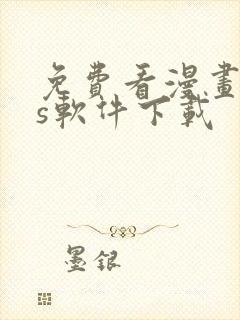 免費看漫畫
s軟件下載
墨銀